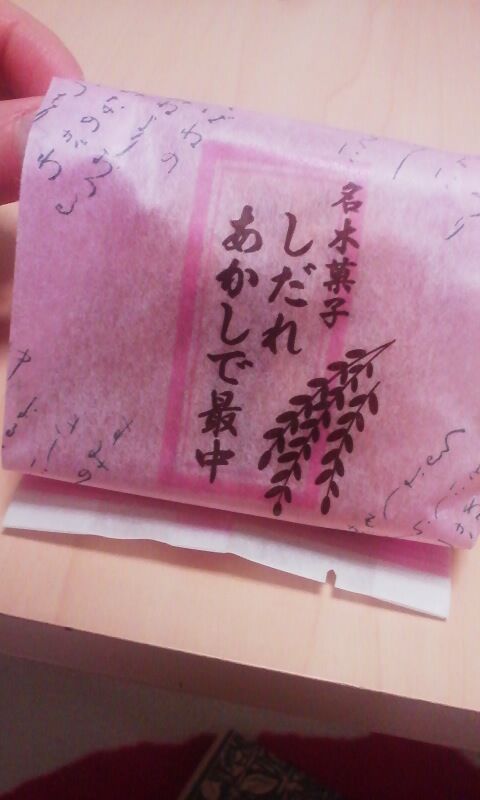 名木菓子
しだれ
あかしで最中